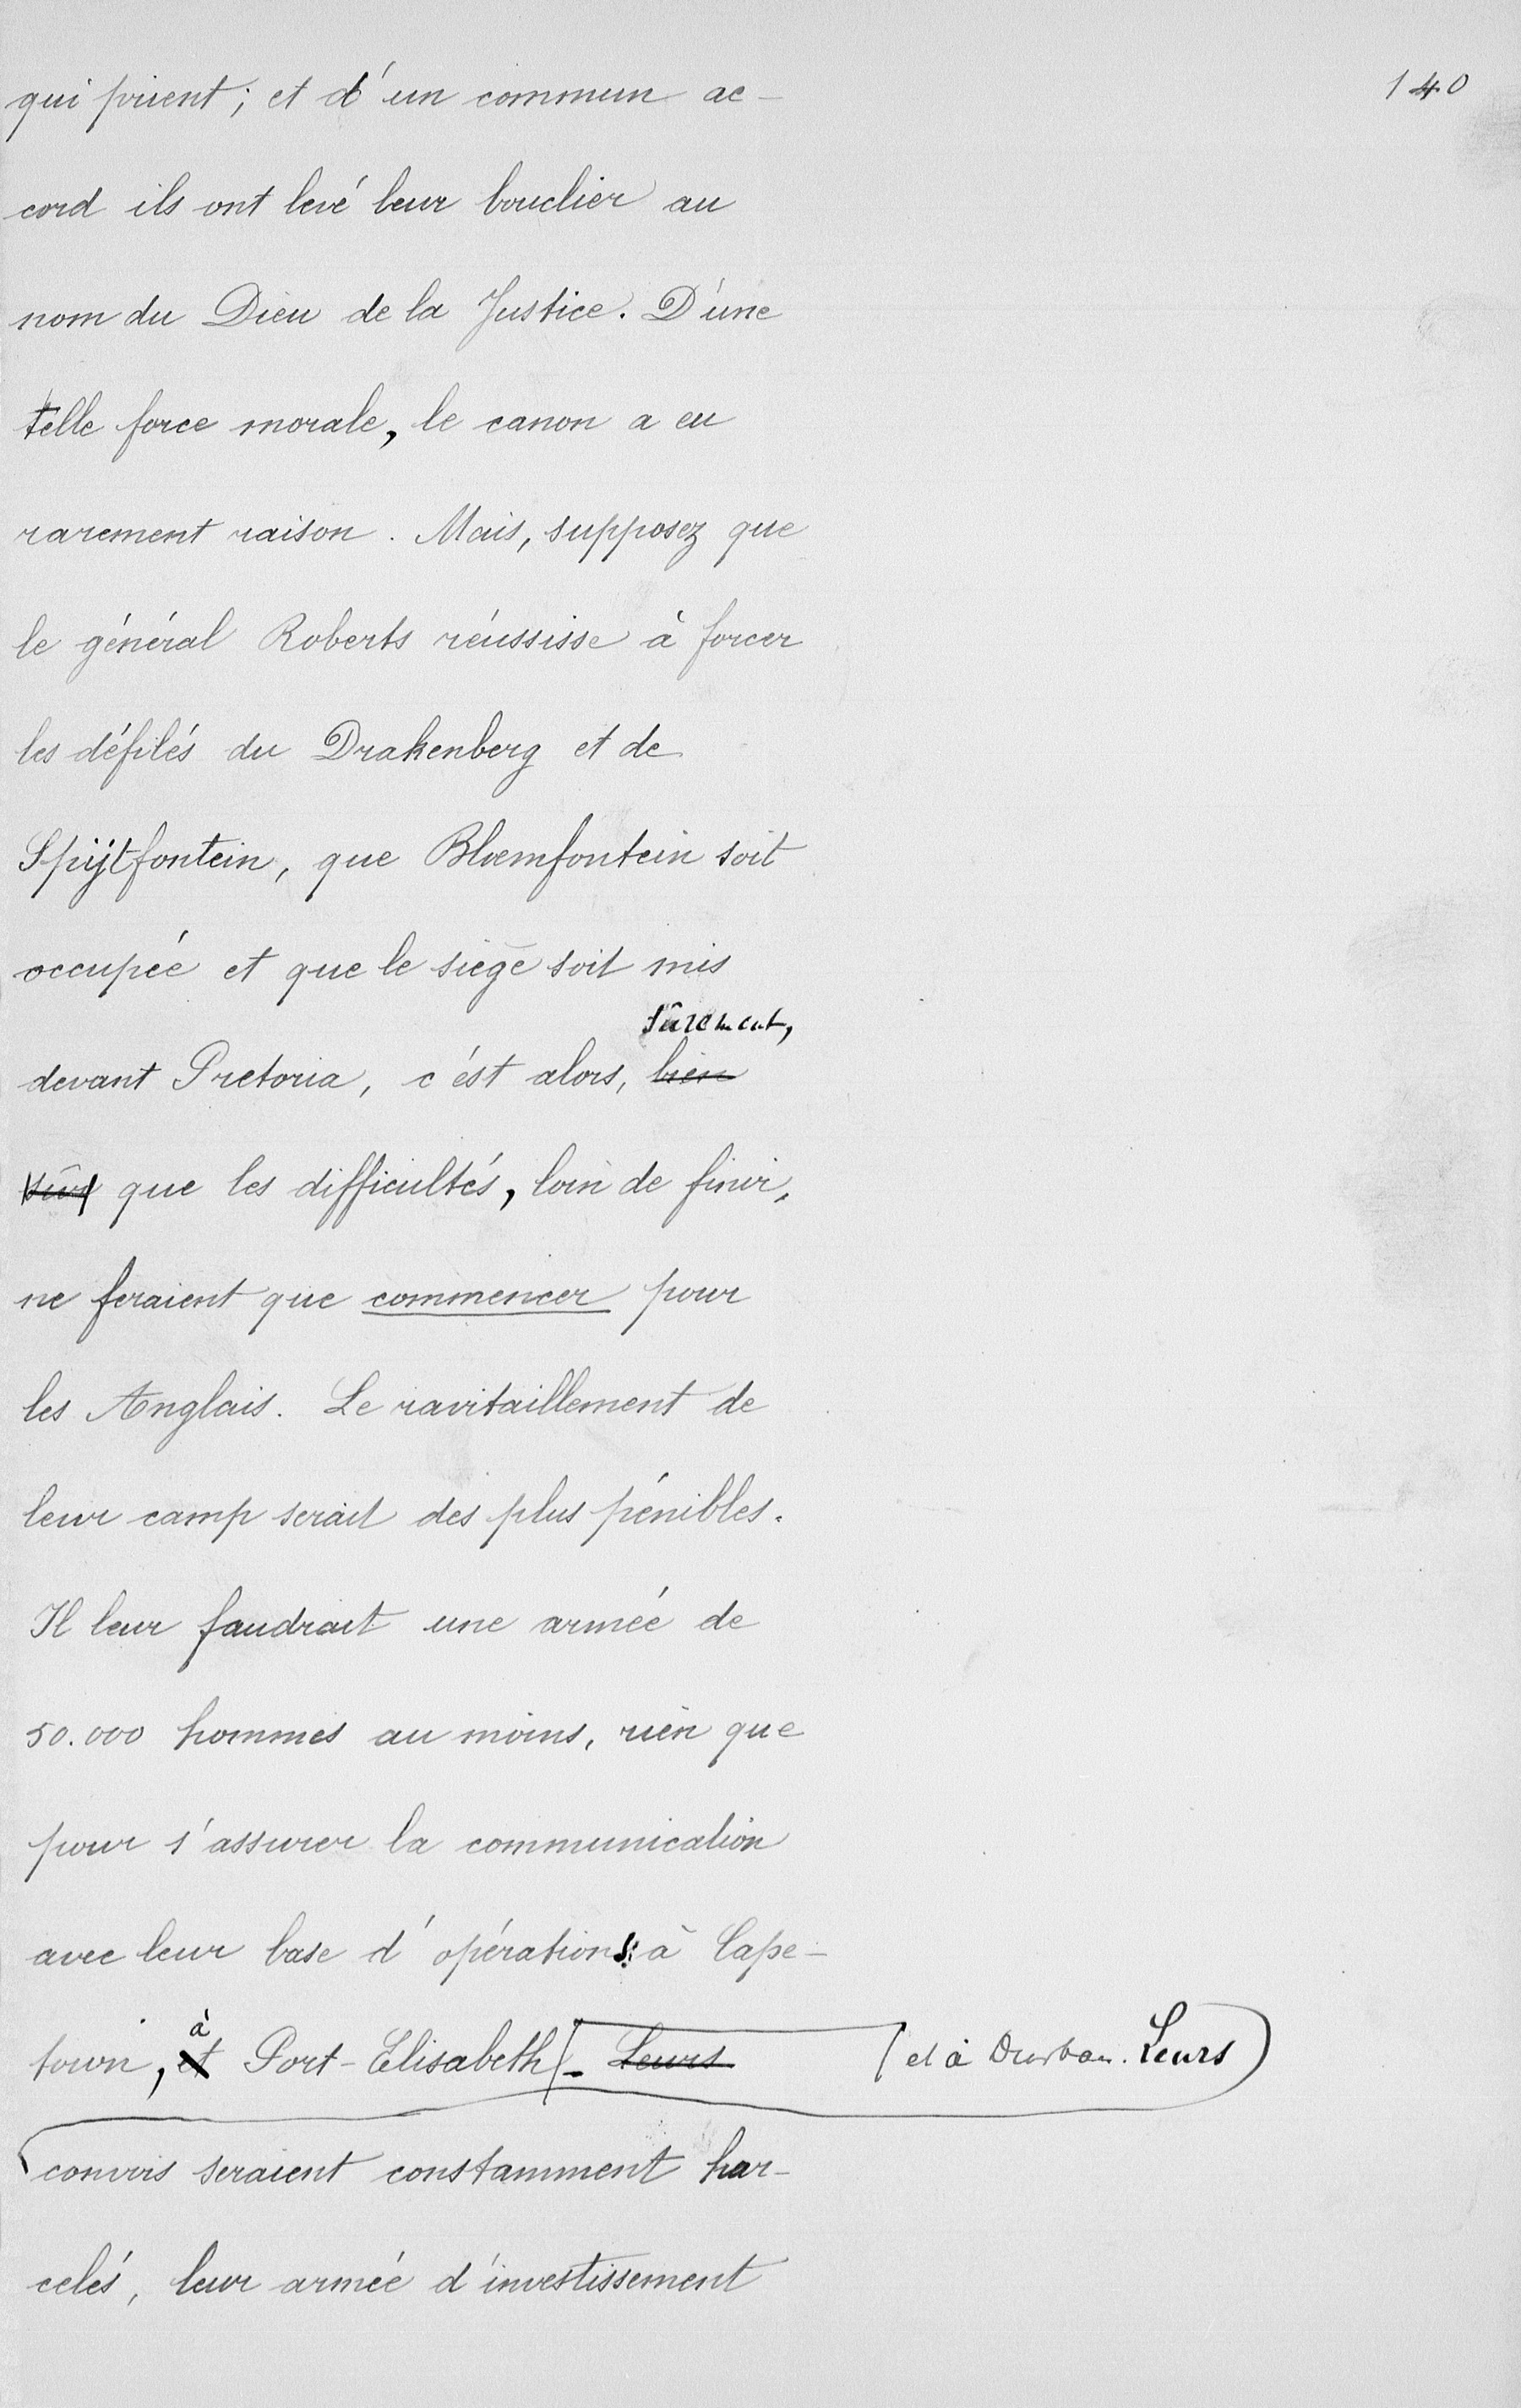 140
qui prient; et d'un commun ac-
cord ils ont levé leur bouclier au
nom du Dieu de la Justice. D'une
telle force morale, le canon a eu
rarement raison. Mais, supposez que
le général Roberts réussisse à forcer
les défilés du Drakenberg et de
Spijtfontein, que Bloemfontein soit
occupée et que le siège soit mis
sûrement,
devant Pretoria, c'est alors, bien
sûr que les difficultés, loin de finir,
ne feraient que commencer pour
les Anglais. Le ravitaillement de
leur camp serait des plus pénibles.
Il leur faudrait une armée de
50.000 hommes au moins, rien que
pour s'assurer la communication
avec leur base d'opérations: à Cape-
à
town, et Port-Elisabeth. Leurs et à Durban. Leurs
convois seraient constamment har-
celés, leur armée d'investissement